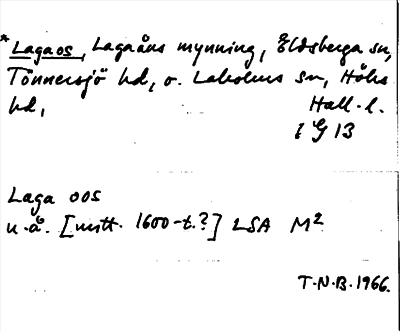 *Lagaos, Lagaåns mynning, Eldsberga sn,
Tönnersjö hd, o. Laholms sn, Höks
hd, Hall. l.
i G 13
Laga oos
u.å. [mitt. 1600-t.?] LSA M2
T.N.B. 1966.